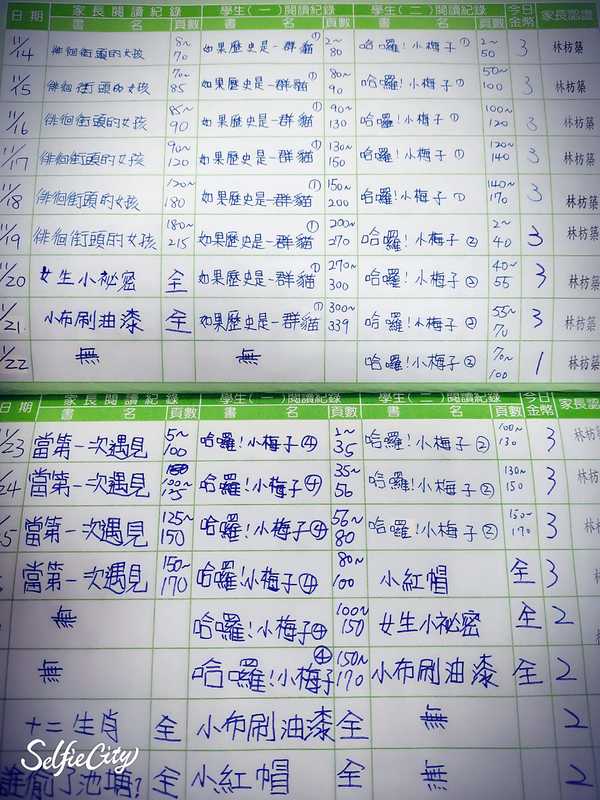 日期 家長閱讀紀錄 學生(一)閱讀紀錄 學生(二)閱讀紀錄 今日金幣 家長認證
書名 頁數 書名 頁數 書名 頁數
11/14 徘徊街頭的女孩 8~70 如果歷史是一群貓① 2~80 哈囉!小梅子① 2~50 3 林枋築
11/15 徘徊街頭的女孩 70~85 如果歷史是一群貓① 80~90 哈囉!小梅子① 50~100 3 林枋築
11/16 徘徊街頭的女孩 85~90 如果歷史是一群貓① 90~130 哈囉!小梅子① 100~120 3 林枋築
11/17 徘徊街頭的女孩 90~120 如果歷史是一群貓① 130~150 哈囉!小梅子① 120~140 3 林枋築
11/18 徘徊街頭的女孩 120~180 如果歷史是一群貓① 150~200 哈囉!小梅子① 140~170 3 林枋築
11/19 徘徊街頭的女孩 180~215 如果歷史是一群貓① 200~270 哈囉!小梅子② 2~40 3 林枋築
11/20 女生小祕密 全 如果歷史是一群貓① 270~300 哈囉!小梅子② 40~55 3 林枋築
11/21 小布刷油漆 全 如果歷史是一群貓① 300~339 哈囉!小梅子② 55~70 3 林枋築
11/22 無 無 哈囉!小梅子② 70~100 1 林枋築
日期 家長閱讀紀錄 學生(一)閱讀紀錄 學生(二)閱讀紀錄 今日金幣 家長認
書名 頁數 書名 頁數 書名 頁數
/23 當第一次遇見 5~100 哈囉!小梅子④ 2~35 哈囉!小梅子② 100~130 3 林枋
/24 當第一次遇見 100~125 哈囉!小梅子④ 35~56 哈囉!小梅子② 130~150 3 林枋
5 當第一次遇見 125~150 哈囉!小梅子④ 56~80 哈囉!小梅子② 150~170 3 林枋
當第一次遇見 150~170 哈囉!小梅子④ 80~100 小紅帽 全 3 林
無 哈囉!小梅子④ 100~150 女生小祕密 全 2
無 哈囉!小梅子④ 150~170 小布刷油漆 全 2
十二生肖 全 小布刷油漆 全 無 2
誰偷了池塘? 全 小紅帽 全 無 2
SelfieCity